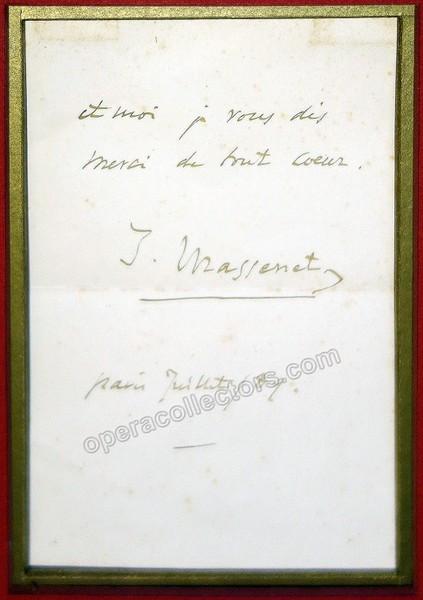 et moi je vous dis
merci de tout coeur.
J. Massenet
paris Juillet
operacollectors.com